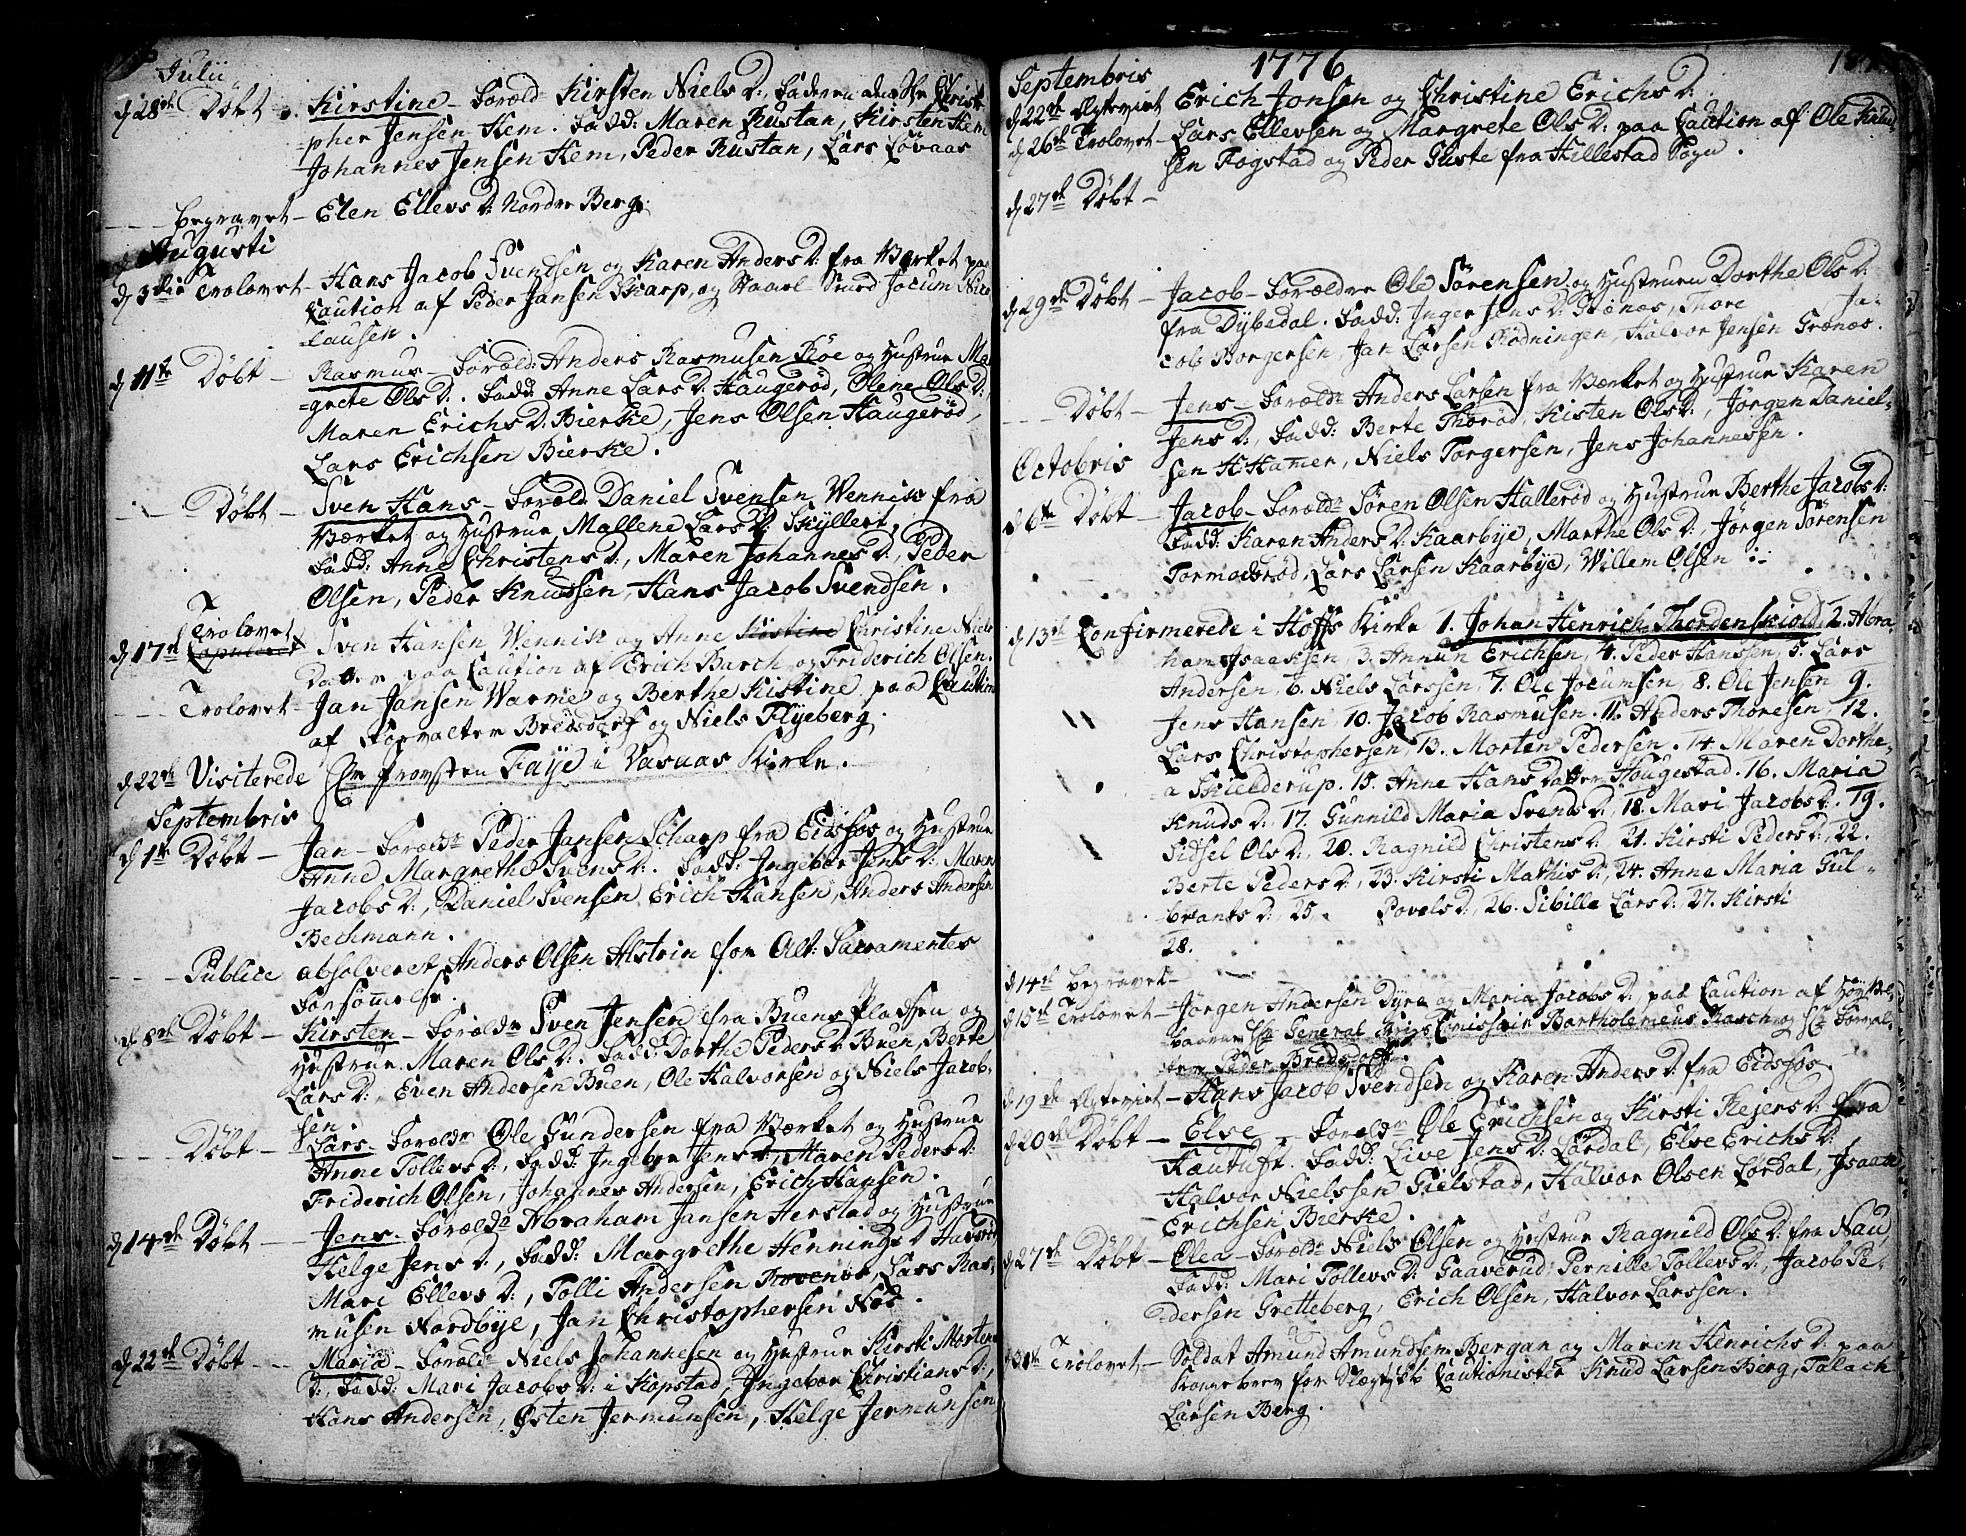 Julii
d 28de Døbt Kirstine - Foræld Kirsten Niels D: Faderen Christ
-pher Jensen Hem. Fadd: Maren Rustan, Kirsten Hem
Johannes Jensen Hem, Peder Rustan, Lars Løvaas
begravet - Elen Ellevs D: Nordre Berg.
Augusti
d 3die Trolovet - Hans Jacob Svendsen og Karen Anders D: fra Værket paa
Caution af Peder Jansen Skarp, og Jocum Nico
lausen.
d 11te Døbt - Rasmus - Foræld: Anders Rasmusen Røe og Hustrue Mar
-grete Ols D:. Fadd: Anne Lars D: Haugerød, Olene Ols D:
Maren Erichs D: Bierke, Jens Olsen Haugerød,
Lars Erichsen Bierke.
Døbt - Sven Hans - Foræld: Daniel Svensen Wennik fra
Værket og Hustrue Mallene Lars D: Skyllert,
Fadd: Anne Christens D:, Maren Johannes D:, Peder
Olsen, Peder Knudsen, Hans Jacob Svendsen.
d 17de Trolovet Copuleret Sven Hansen Wennik og Anne Kirstine Christine Niels
Datter paa Caution af Erich Barch og Friderich Olsen.
Trolovet - Jan Jansen Warme og Berthe Kistine paa Caution
af Forvalter Bredsdorf og Niels Flyeberg.
d 22de Visiterede Hr Provsten Faye i Vasaas Kirke.
Septembris
d 1te Døbt - Jan - Foræld Peder Jansen Scharp fra Eidsfos og Hustrue
Anne Margrethe Svens D:. Fadd: Ingebor Jens D: Maren
Jacobs D:, Daniel Svensen, Erich Hansen, Anders Andersen
Bechmann.
Publice absolveret Anders Olsen Alstrin for Alt: Sacramentes
Forsømmelse.
d 8de Døbt - Kirsten - Foræld Sven Jensen fra Buens Pladsen og
Hustrue Maren Ols D:. Fadd: Dorthe Peders D: Buen, Berte
Lars D:, Even Andersen Buen, Ole Halvorsen og Niels Jacob-
sen.
Døbt - Lars - Foræld Ole Gundersen fra Værket og Hustrue
Anne Tollevs D:, Fadd: Ingebor Jens D:, Maren Peders D:
Friderich Olsen, Johannes Andersen, Erich Hansen.
d 14de Døbt - Jens - Foræld Abraham Jansen Herstad og Hustrue
Helge Jens D:, Fadd: Margrethe Hennings D:
Mari Ellevs D:, Tolli Andersen Lars Ras-
musen Nordbye, Jan Christophersen Nød.
d 22de Døbt - Maria - Foræld Niels Johannesen og Hustrue Kirsti Morten
D:, Fadd: Mari Jacobs D: i Kopstad, Ingebor Christians D:,
Hans Andersen, Østen Jermunsen, Helge Jermunsen
1776
Septembris
d 22de Erich Jonsen og Christine Erichs D:
d 26de Trolovet - Lars Ellevsen og Margrete Ols D: paa Caution af Ole Knud
sen Fogstad og Peder Gliste fra Hillestad Sogn.
d 27de Døbt -
d 29de Døbt - Jacob - Forældre Ole Sørensen og Hustrue Dorthe Ols D:
fra Dybedal. Fadd: Inger Jens D: Grønas, Thore Ja-
cob Borgersen, Jan Larsen Rødningen, Halvor Jensen Grønas.
Døbt - Jens - Foræld Anders Larsen fra Værket og Hustrue Karen
Jens D:, Fadd: Berte Thorød, Kisten Ols D:, Jørgen Daniel-
sen Hamer, Niels Torgersen, Jens Johannessen.
Octobris
d 6te Døbt - Jacob - Foræld Søren Olsen Hallerød og Hustrue Berthe Jacobs D:
Fadd: Karen Anders D: Kaarbye, Marthe Ols D:, Jørgen Sørensen
Tormodsrød, Lars Larsen Kaarbye, Willem Olsen
d 13de Confirmerede i Hoffs Kirke 1. Johan Henrich Thordenskiold 2. Abra
ham Isaaksen, 3. Annun Erichsen, 4. Peder Hanssen, 5. Lars
Andersen, 6. Niels Larssen, 7. Ole Jocumsen, 8. Ole Jensen 9.
Jens Hansen, 10. Jacob Rasmusen. 11. Anders Thoresen, 12.
Lars Christophersen, 13. Morten Pedersen. 14. Maren Dorthe-
a Skielderup. 15. Anne Hans Datter Hougestad. 16. Maria
Knuds D: 17. Gunnild Maria Svends D:, 18. Mari Jacobs D:. 19.
Sidsel Ols D:, 20. Ragnild Christens D: 21. Kirsti Peders D:, 22.
Berte Peders D:, 23. Kirsti Mathis D:, 24. Anne Maria Gul-
brants D:, 25. Povels D:, 26. Sibille Lars D: 27. Kirsti
28.
d 14de begravet -
d 15de Trolovet - Jørgen Andersen Dyre og Maria Jacobs D: paa Caution af Høy Vel-
baarne Hr General Krigs Comissair Bartholemeus Rasch og Hr Forval-
ter Peder Bredsdorff.
d 19de - Hans Jacob Svendsen og Karen Anders D: fra Eidsfos.
d 20de Døbt - Else - Foreldr Ole Erichsen og Kirsti Rejers D: fra
Kautuft. Fadd: Live Jens D: Lørdal, Else Erichs D:
Halvor Nielssen Gielstad, Halvor Olsen Lørdal, Isaack
Erichsen Bierke.
d 27de Døbt - Olea - Foræld Niels Olsen og Hustrue Ragnild Ols D: fra Nau,
Fadd: Mari Tollevs D: Gaaverud: Pernille Tollevs D:, Jacob Pe-
dersen Gretteberg, Erich Olsen, Halvor Larssen.
Trolovet - Soldat Amund Amundsen Bergan og Maren Henrichs D: paa
Kongebrev for Cautionister Knud Larsen Berg, Tolach
Larsen Berg.